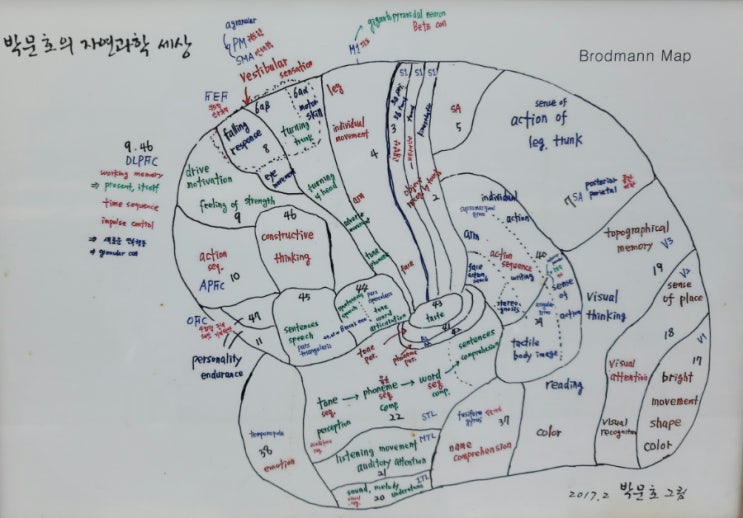 박문호의 자연과학 세상
Brodmann Map
agranular
PM
SMA
vestibular
sensation
M1
giganto pyramidal neuron
Betz cell
FEF
6aβ
6aα
motor
skill
leg
S1 S1 S1
falling
response
8
turning
trunk
eye
movement
individual
movement
4
3
1
2
SA
5
sense of
action of
leg, trunk
9. 46
DLPFC
working memory
⇒ present, itself
time sequence
impulse control
⇒ granular cell
drive
motivation
feeling of strength
9
turning
head
arm
face
46
constructive
thinking
action
seq.
10
APFC
individual
action
supramarginal
gyrus
arm
action
sequence
40
face
writing
stereo-
gnosis
sense
of
action
angular
gyrus
39
tactile
body image
7
SA
posterior
parietal
topographical
memory
V3
19
V2
sense
of place
Visual
thinking
18
V1
17
45
sentences
speech
pars
triangularis
44
pars
opercularis
tone
word
articulation
43
taste
41
42
47
11
OFC
personality
endurance
tone
per.
phoneme
per.
sentences
comprehension
tone → phoneme → word
seq. seq. seq.
perception comp. comp.
22
STL
reading
visual
attention
bright
movement
shape
color
visual
recognition
color
temporopolar
38
emotion
listening movement
auditory attention
MTL
21
fusiform
gyrus
37
name
comprehension
sound, melody
understand
ITL
20
2017.2 박문호 그림